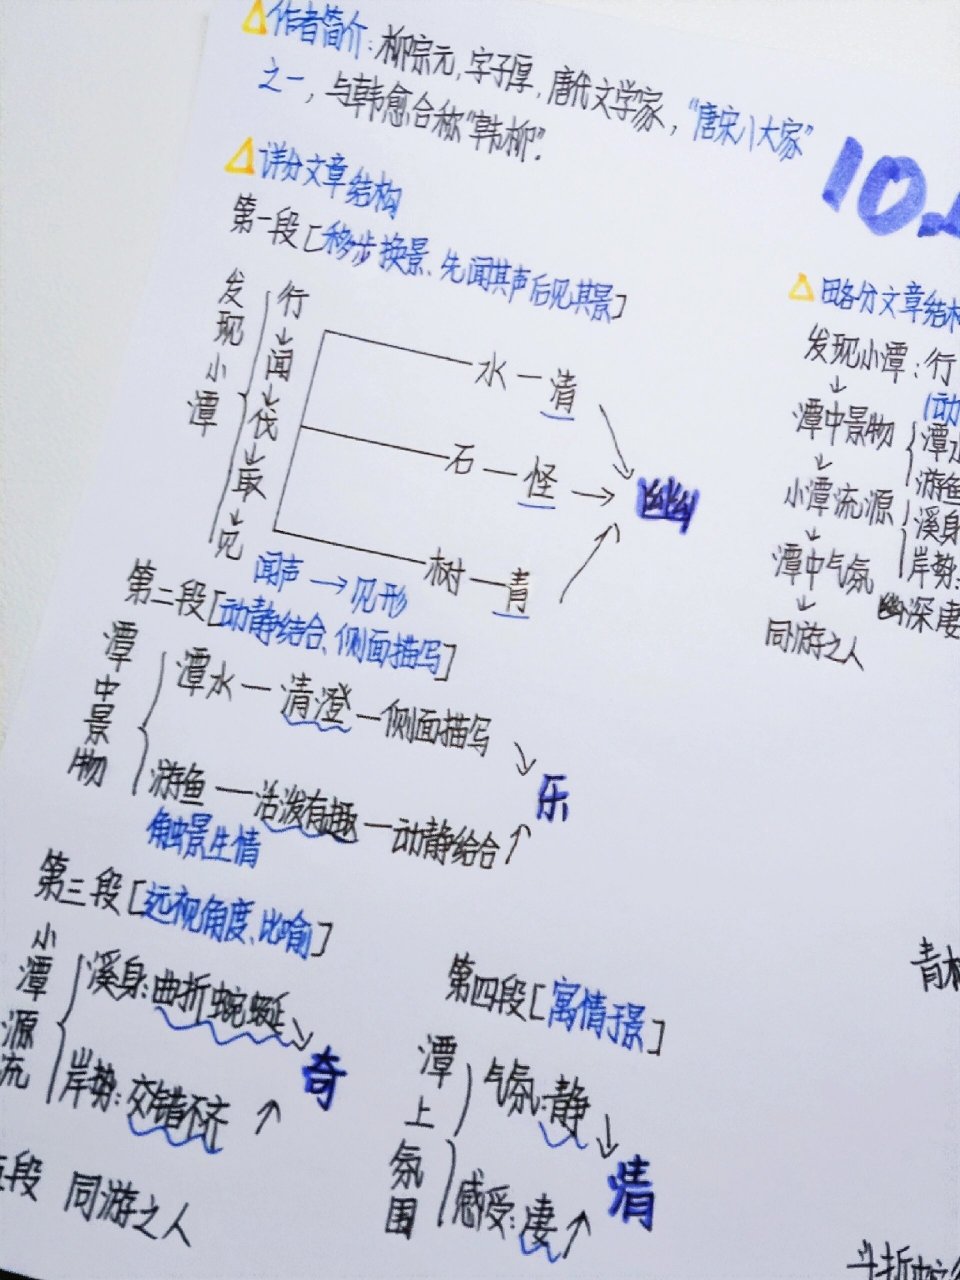 △作者简介：柳宗元，字子厚，唐代文学家，“唐宋八大家”
之一，与韩愈合称“韩柳”。
10.
△详分文章结构
第一段［移步换景、先闻其声后见其景］
发现小潭
行→闻→伐→取→见
水—清
石—怪→幽
树—青
闻声→见形
第二段［动静结合、侧面描写］
潭中景物
潭水—清澄—侧面描写
游鱼—活泼有趣—动静结合
乐
触景生情
第三段［远视角度、比喻］
小潭源流
溪身：曲折蜿蜒
岸势：交错不齐
奇
段 同游之人
第四段［寓情于景］
潭上氛围
气氛：静
感受：凄
清
△略分文章结构
发现小潭：行
↓
潭中景物
潭水
游鱼
↓
小潭流源
溪身
岸势：
↓
潭中气氛 幽深凄
↓
同游之人
青树
斗折蛇